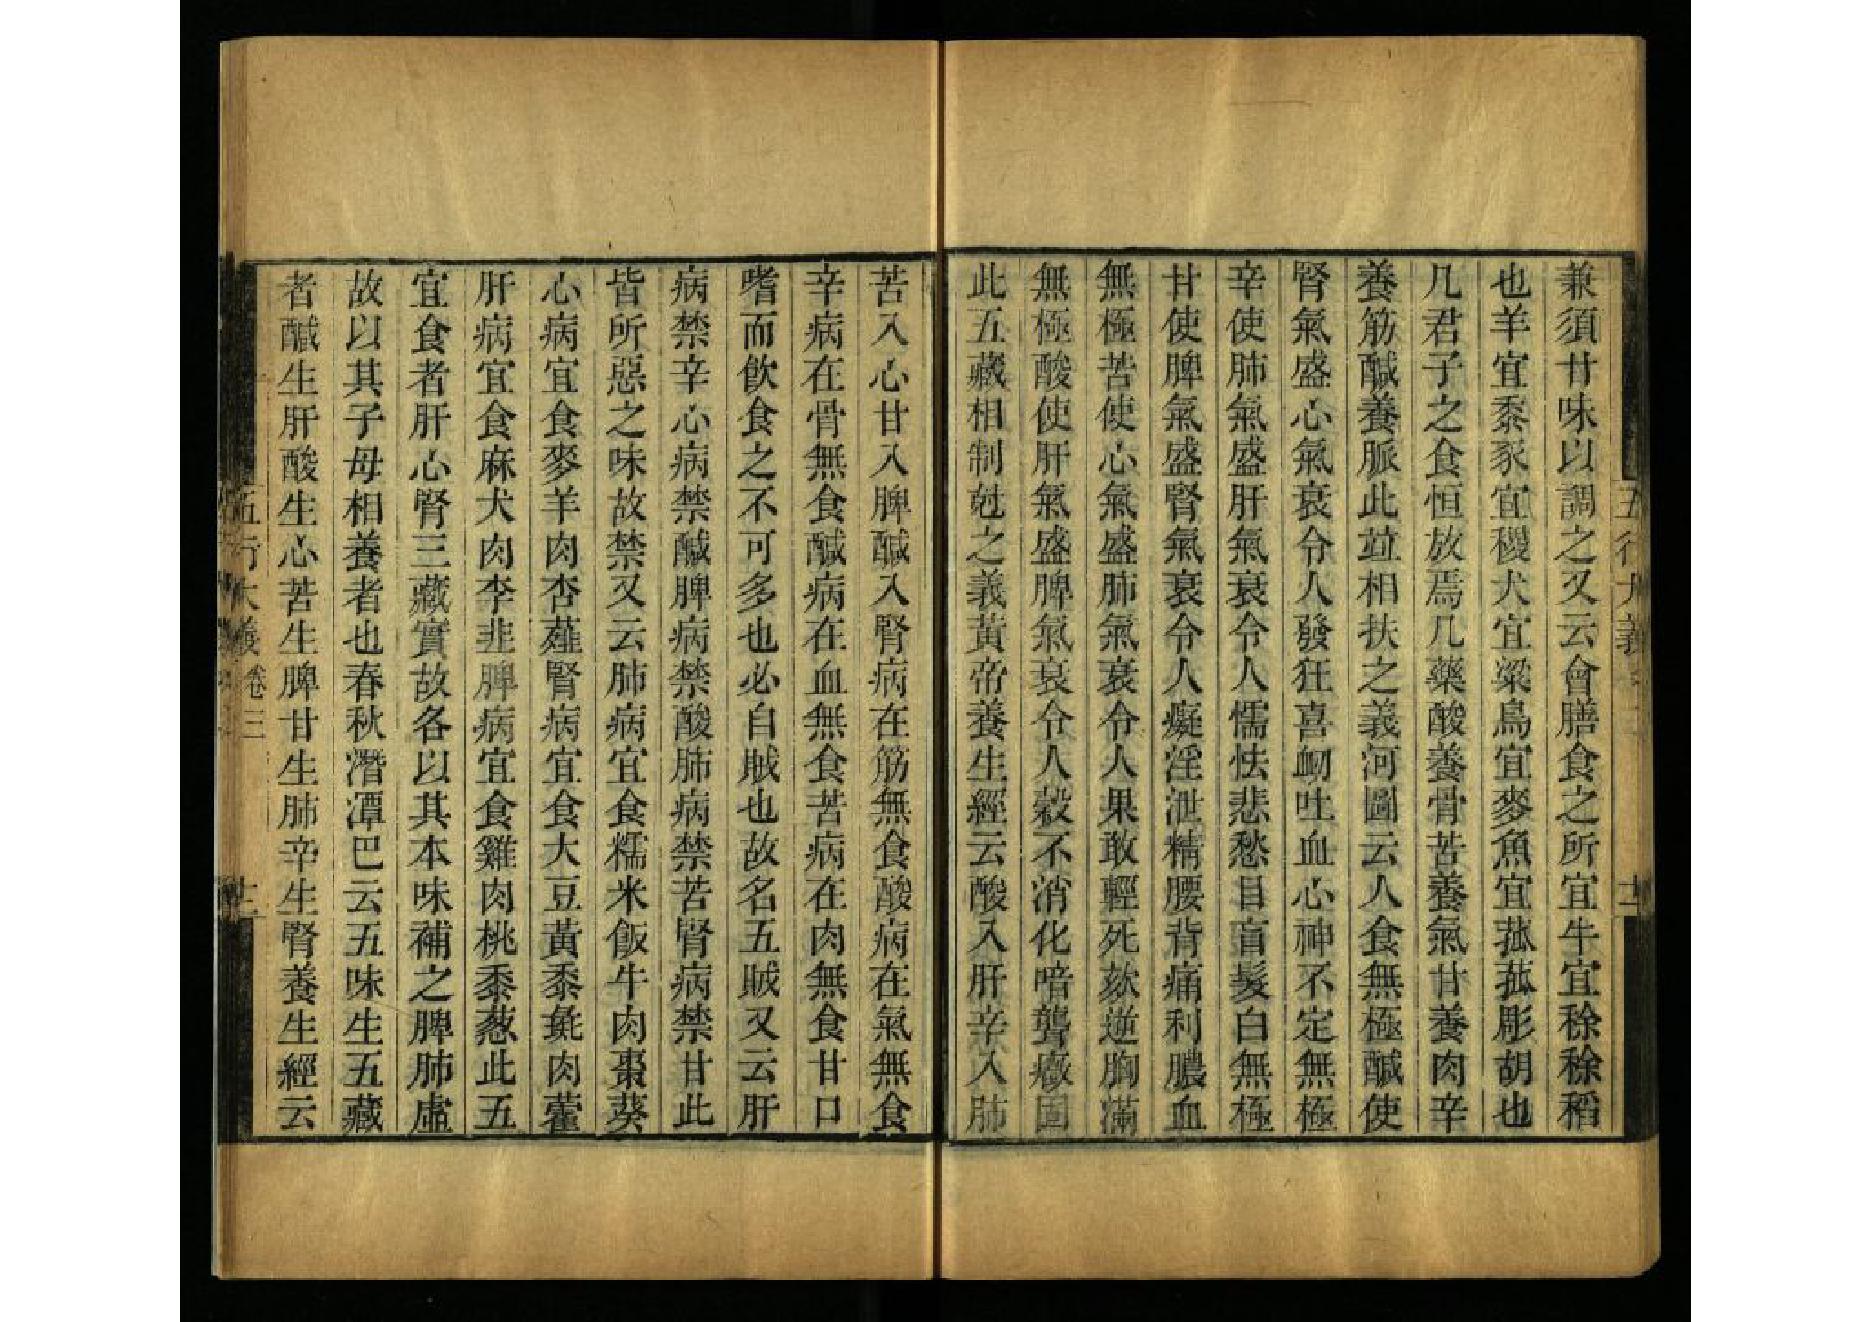 兼須甘味以調之又云會膳食之所宜牛宜稌稌稻
也羊宜黍豕宜稷犬宜粱鳥宜麥魚宜菰菰彫胡也
凡君子之食恒放焉凡藥酸養骨苦養氣甘養肉辛
養筋醎養脈此竝相扶之義河圖云人食無極醎使
腎氣盛心氣衰令人發狂喜衂吐血心神不定無極
辛使肺氣盛肝氣衰令人懦怯悲愁目盲髮白無極
甘使脾氣盛腎氣衰令人癡淫泄精腰背痛利膿血
無極苦使心氣盛肺氣衰令人果敢輕死欬逆胸滿
無極酸使肝氣盛脾氣衰令人穀不消化喑聾癥固
此五藏相制尅之義黃帝養生經云酸入肝辛入肺
苦入心甘入脾醎入腎病在筋無食酸病在氣無食
辛病在骨無食醎病在血無食苦病在肉無食甘口
嗜而飮食之不可多也必自賊也故名五賊又云肝
病禁辛心病禁醎脾病禁酸肺病禁苦腎病禁甘此
皆所惡之味故禁又云肺病宜食糯米飯牛肉棗葵
心病宜食麥羊肉杏薤腎病宜食大豆黃黍彘肉藿
肝病宜食麻犬肉李韭脾病宜食雞肉桃黍葱此五
宜食者肝心腎三藏實故各以其本味補之脾肺虛
故以其子母相養者也春秋潛潭巴云五味生五藏
者醎生肝酸生心苦生脾甘生肺辛生腎養生經云
五行大義卷三